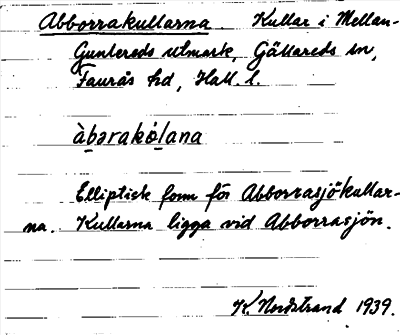 Abborrakullarna. Kullar i Mellan-
Guntereds utmark, Gällareds sn,
Faurås hd, Hall. l.
àbərakò̩lana
Elliptisk form för Abborrasjökullar-
na. Kullarna ligga vid Abborrasjön.
K. Nordstrand 1939.